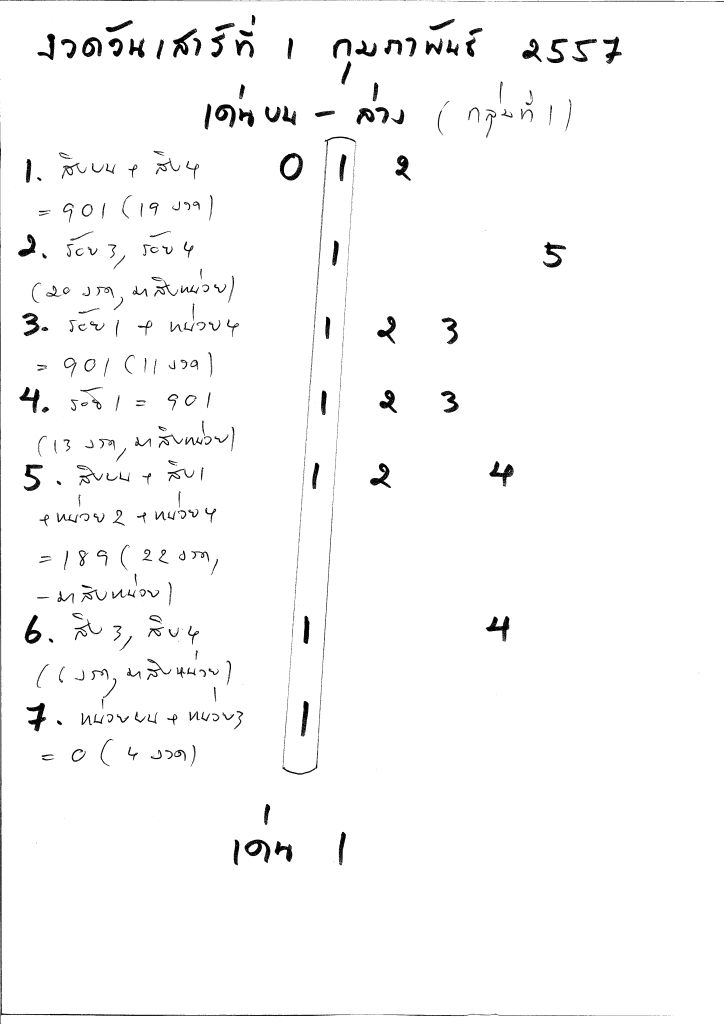 งวดวันเสาร์ที่ 1 กุมภาพันธ์ 2557
เด่นบน - ล่าง (กลุ่มที่ 1)
1. สิบบน + สิบ 4 0 1 2
= 901 (19 งวด)
2. ร้อย 3, ร้อย 4 1 5
(20 งวด, มาสิบหน่วย)
3. ร้อย 1 + หน่วย 4 1 2 3
= 901 (11 งวด)
4. ร้อย 1 = 901 1 2 3
(13 งวด, มาสิบหน่วย)
5. สิบบน + สิบ 1 1 2 4
+ หน่วย 2 + หน่วย 4
= 189 (22 งวด,
- มาสิบหน่วย)
6. สิบ 3, สิบ 4 1 4
(6 งวด, มาสิบหน่วย)
7. หน่วยบน + หน่วย 3 1
= 0 (4 งวด)
เด่น 1